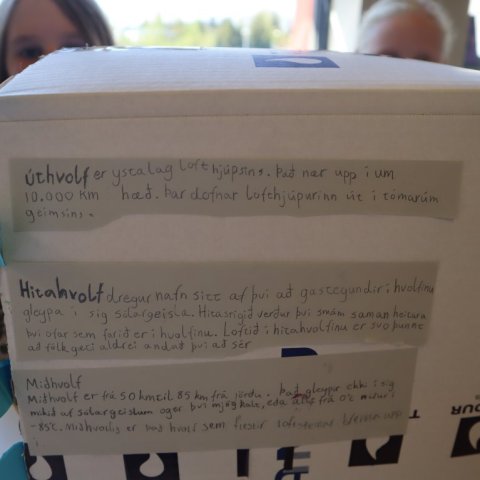 úthvolf er ysta lag lofthjúpsins. Það nær upp í um
10.000 km hæð. Þar dofnar lofthjúpurinn út í tómarúm
geimsins.
Hitahvolf dregur nafn sitt af því að gastegundir í hvolfinu
gleypa í sig sólargeisla. Hitastigið verður því smám saman heitara
því ofar sem farið er í hvolfinu. Loftið í hitahvolfinu er svo þunnt
að fólk geti aldrei andað því að sér
Miðhvolf
Miðhvolf er frá 50 km til 85 km frá jörðu. Það gleypir ekki í sig
mikið af sólargeislum og er því mjög kalt, eða allt frá 0°c niður í
-85°c. Miðhvolfið er það hvolf sem flestir loftsteinar brenna upp
í.
OUR